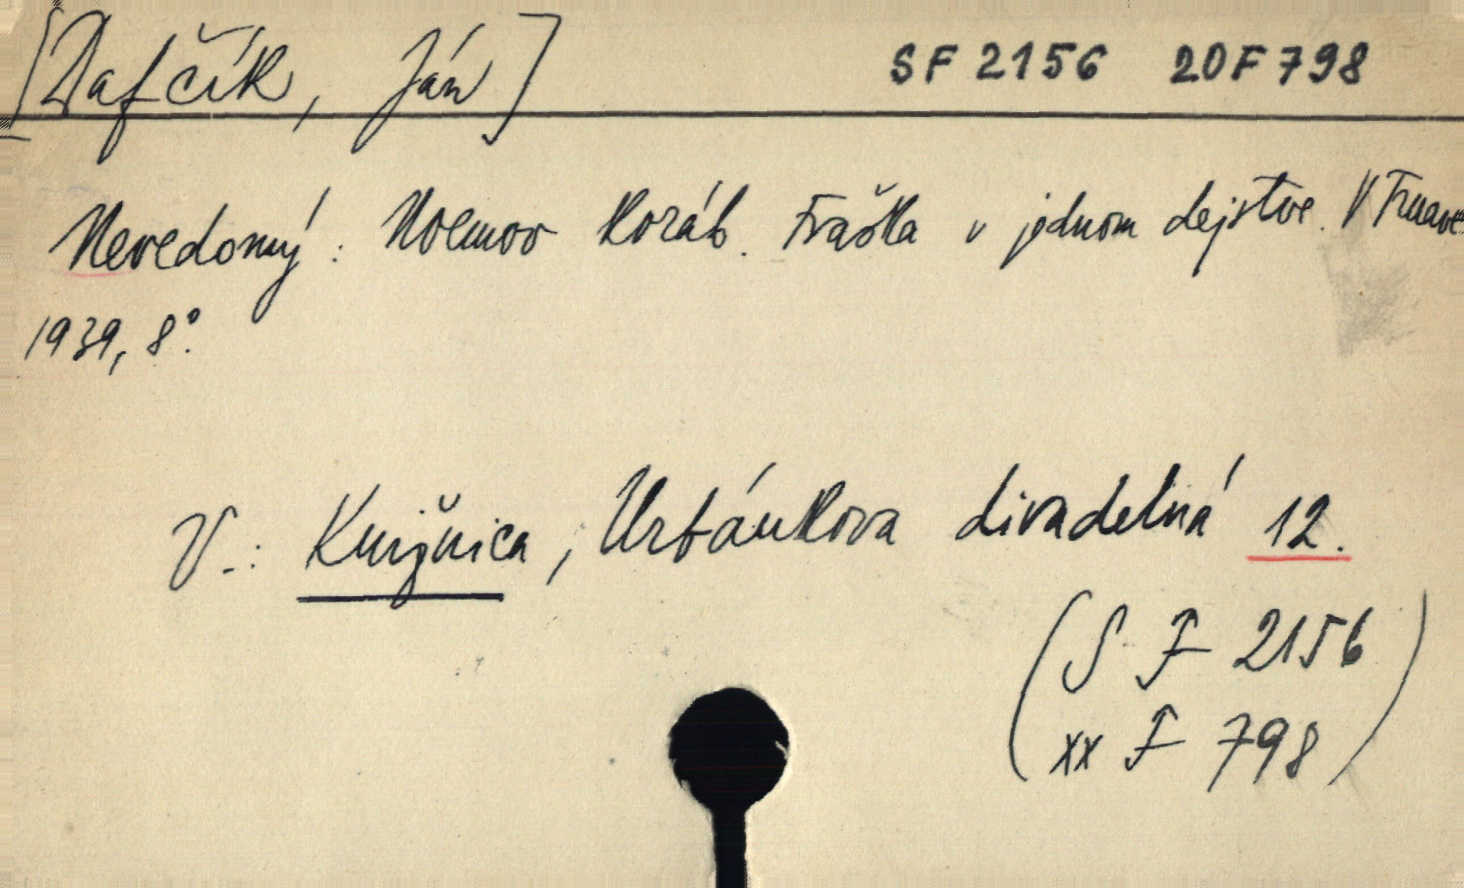 [Dafčík, Ján] SF 2156 20F798
Nevedomý: Noemov Koráb. Fraška v jednom dejstve. V Trnave
1939, 8°.
V.: Knižnica, Urbánkova divadelná 12.
(S F 2156
xx F 798)